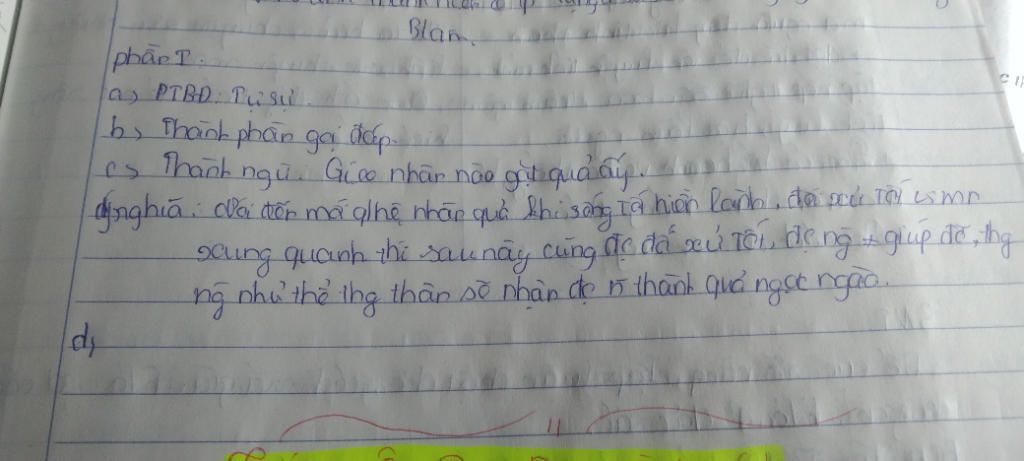 Blàm.
phần I.
a, PTBĐ: Tự sự.
b, Thành phần gọi đáp.
c, Thành ngữ. Gieo nhân nào gặt quả ấy.
ýnghĩa: nói đến mối qlhệ nhân quả khi sống tốt hiền lành, đối xử tốt vs mn
xung quanh thì sau này cũng đc đối xử tốt, đc ng ≠ giúp đỡ, thg
ng như thể thg thân sẽ nhận đc n~ thành quả ngọt ngào.
d,